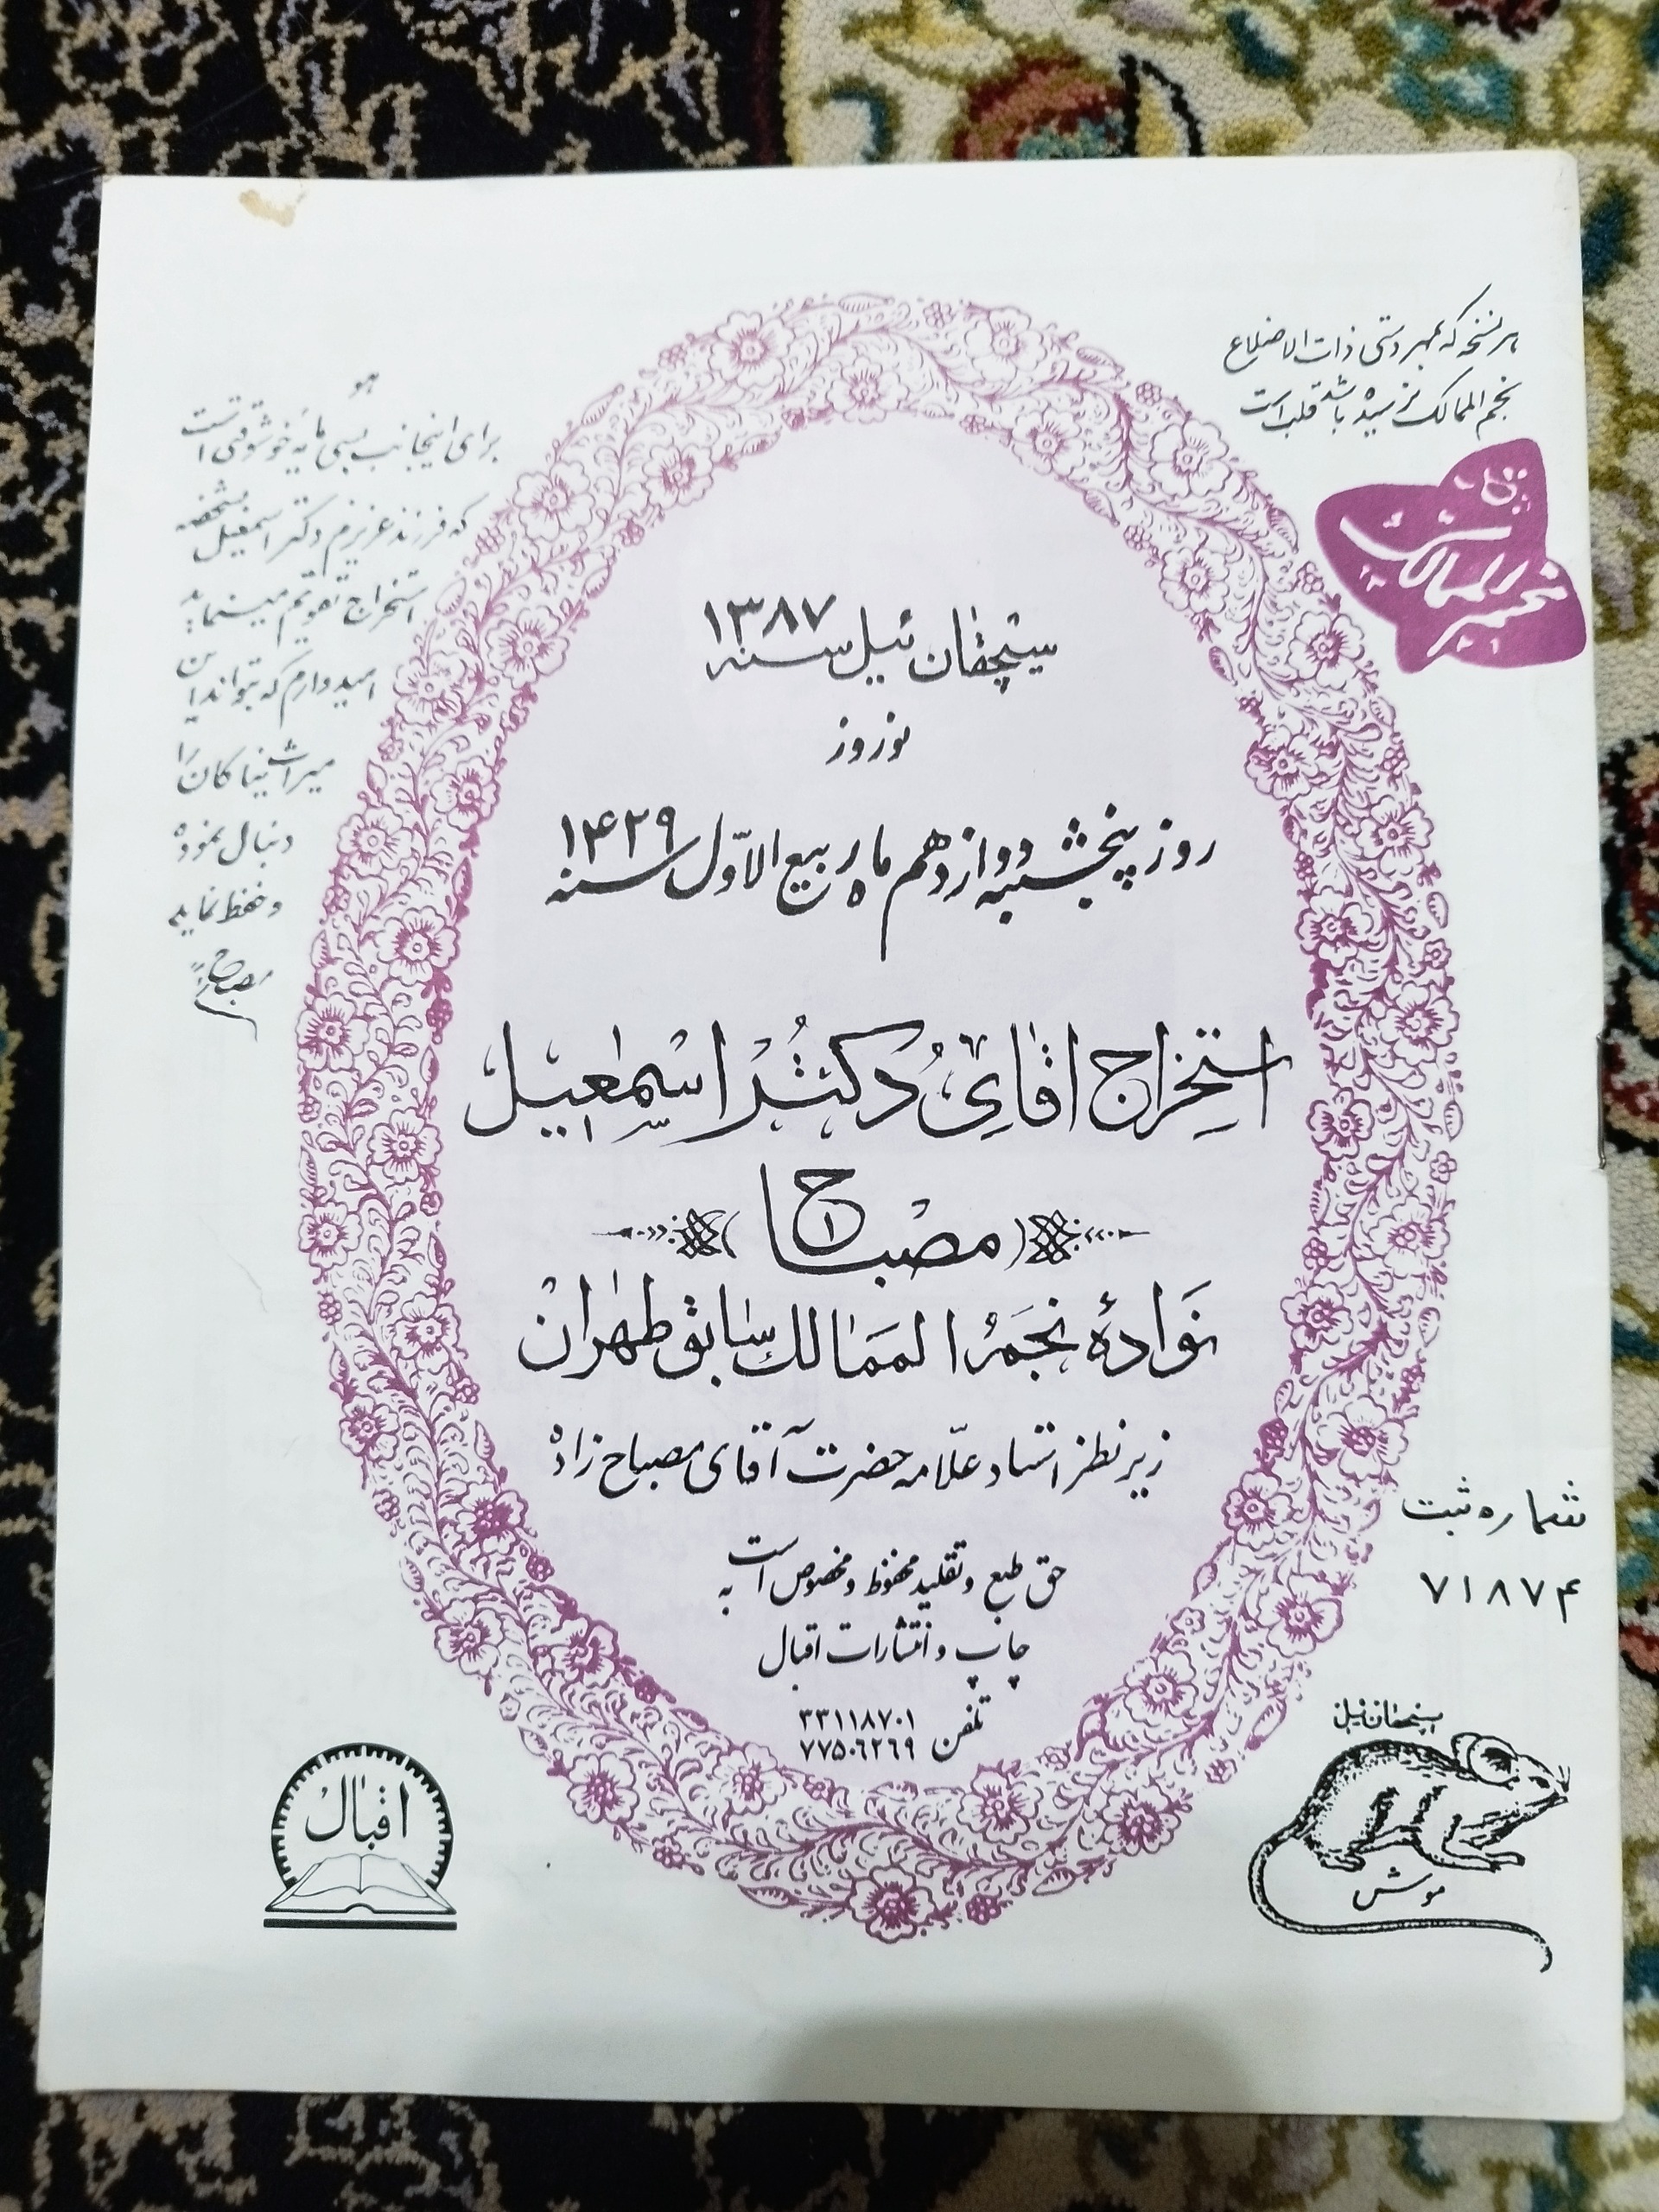 هر نسخه که بمهر دستی ذات الاضلاع
نجم الممالک نرسیده باشد قلب است
هو
برای اینجانب بسی مایه خوشوقتی است
که فرزند عزیزم دکتر اسمعیل بشخصه
استخراج تقویم مینماید
امیدوارم که بتواند این
میراث نیاکان را
دنبال نموده
و حفظ نماید
مصباح
سیچقان ئیل سنه ۱۳۸۷
نوروز
روز پنجشنبه دوازدهم ماه ربیع الاوّل سنه ۱۴۲۹
استخراج اقای دکتر اسمعیل
مصباح
نوادهٔ نجم الممالک سابق طهران
زیر نظر استاد علّامه حضرت آقای مصباح زاده
حق طبع و تقلید محفوظ و مخصوص است به
چاپ و انتشارات اقبال
تلفن ۳۳۱۱۸۷۰۱
۷۷۵۰۶۲۶۹
شماره ثبت
۷۱۸۷۴
سیچقان ئیل
موش
اقبال